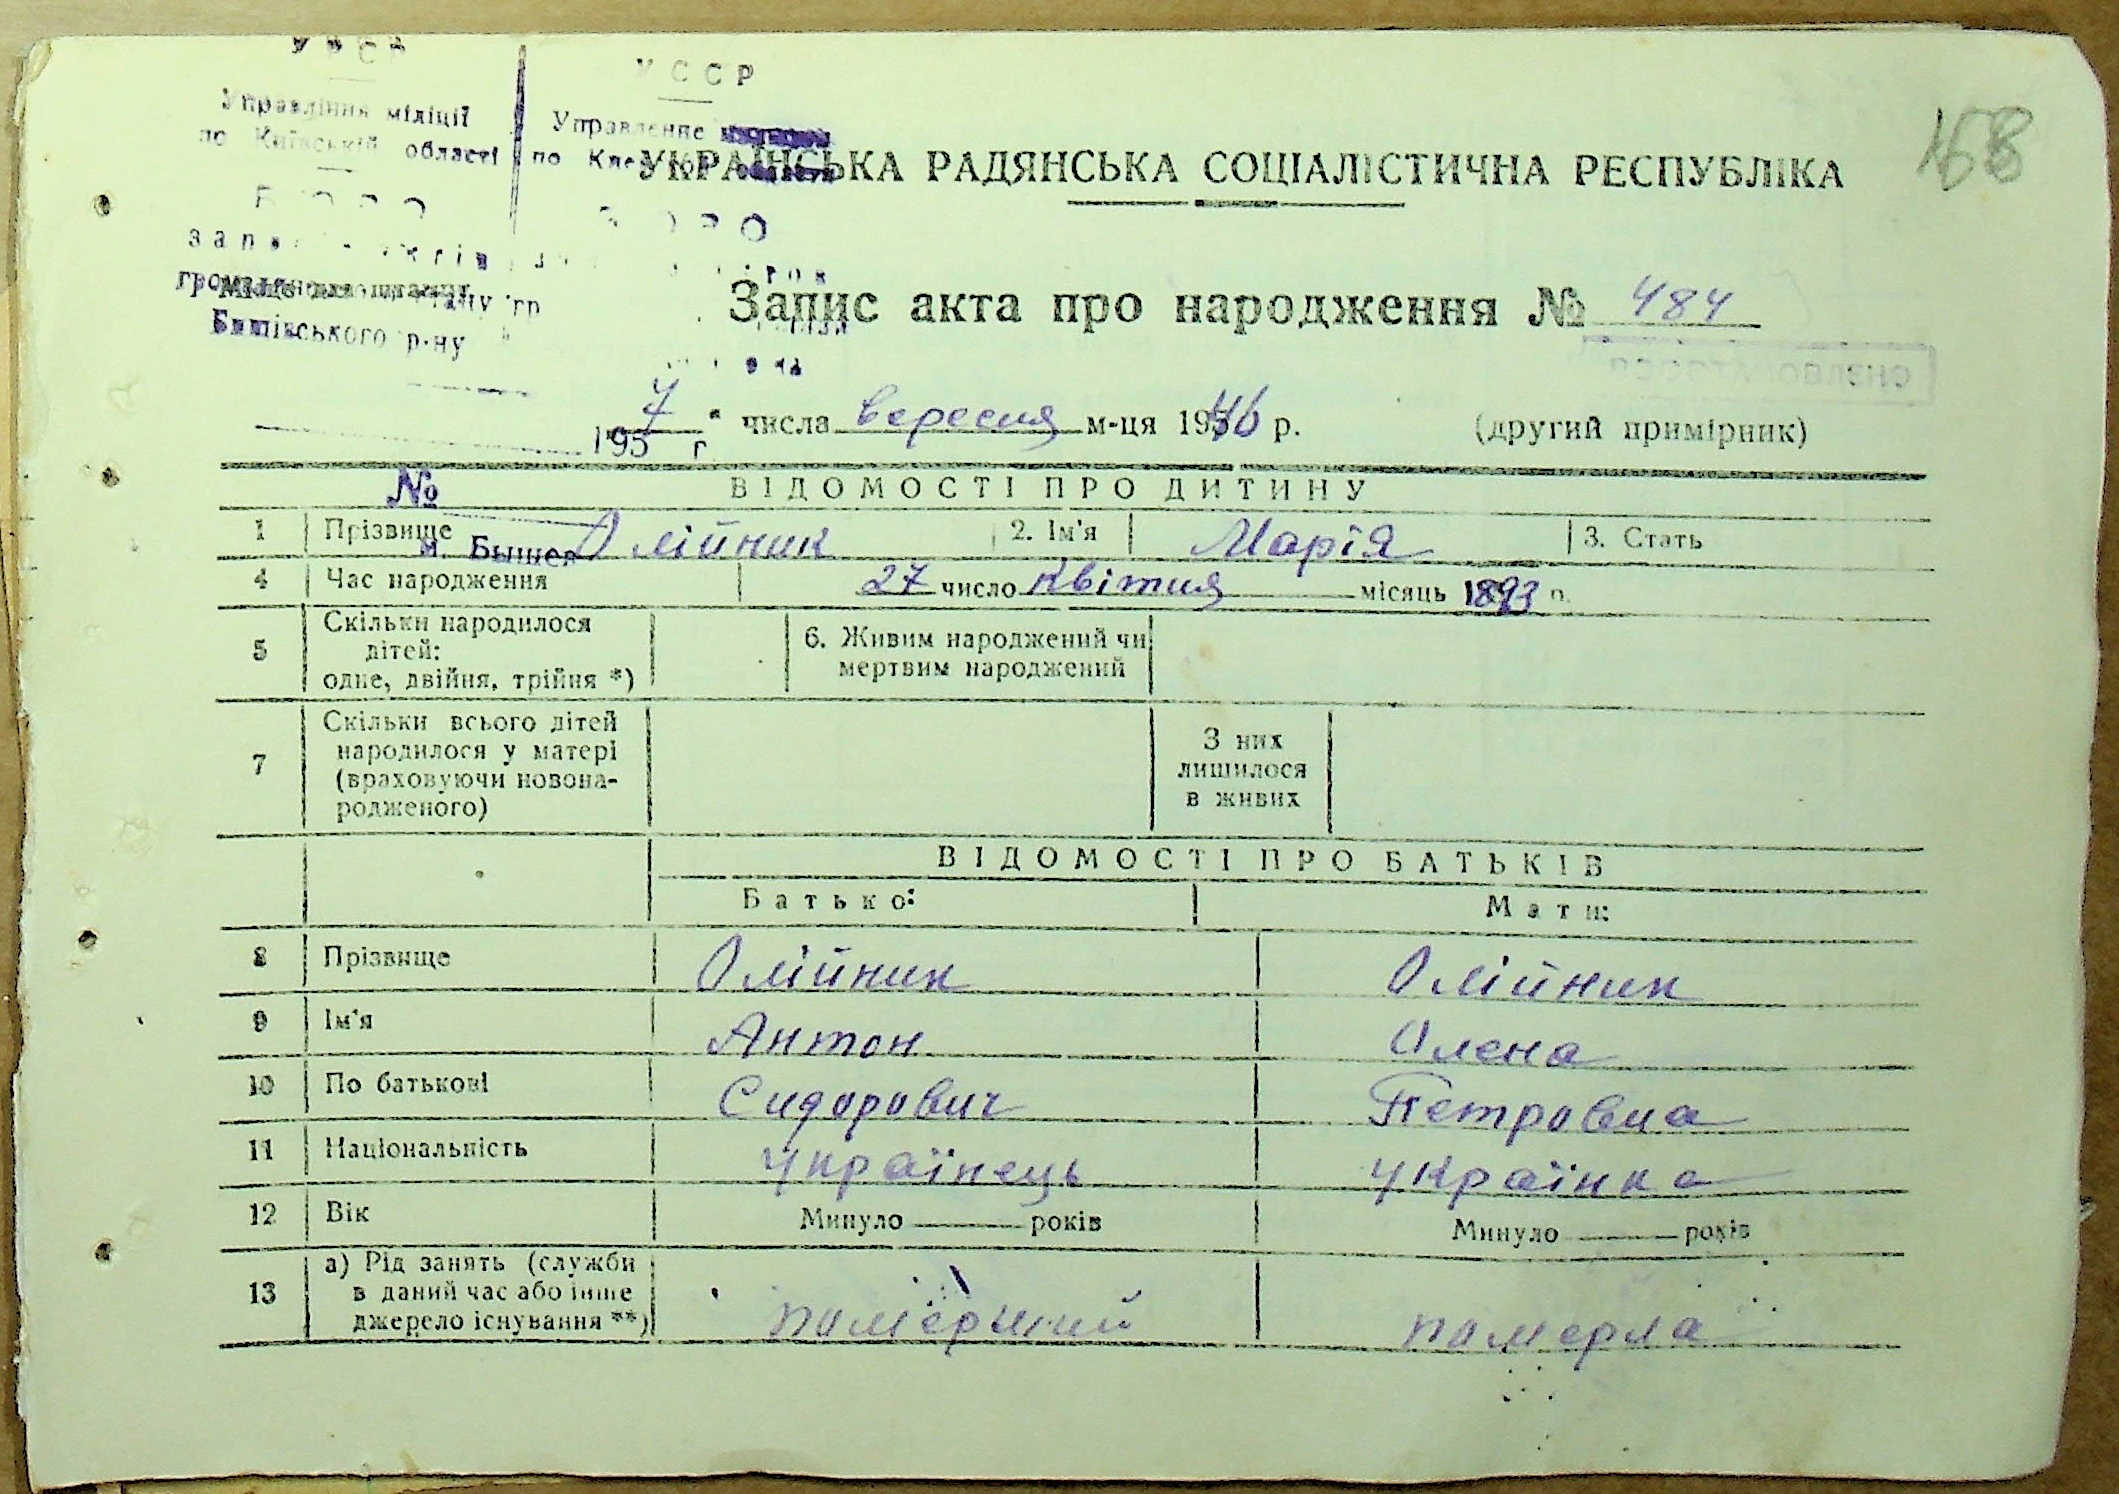 УРСР
УССР
Управління міліції
по Київській області
Управление
по
158
УКРАЇНСЬКА РАДЯНСЬКА СОЦІАЛІСТИЧНА РЕСПУБЛІКА
Запис акта про народження № 484
р-ну
7 числа вересня м-ця 1956 р. (другий примірник)
195 г
№
ВІДОМОСТІ ПРО ДИТИНУ
1 Прізвище Олійник 2. Ім'я Марія 3. Стать
4 Час народження 27 число квітня місяць 1893 р.
5 Скільки народилося
дітей:
одне, двійня, трійня *)
6. Живим народжений чи
мертвим народжений
7 Скільки всього дітей
народилося у матері
(враховуючи новона-
родженого)
З них
лишилося
в живих
ВІДОМОСТІ ПРО БАТЬКІВ
Батько: Мати:
8 Прізвище Олійник Олійник
9 Ім'я Антон Олена
10 По батькові Сидорович Петровна
11 Національність українець українка
12 Вік Минуло років Минуло років
13 а) Рід занять (служби
в даний час або інше
джерело існування **)
померший померла